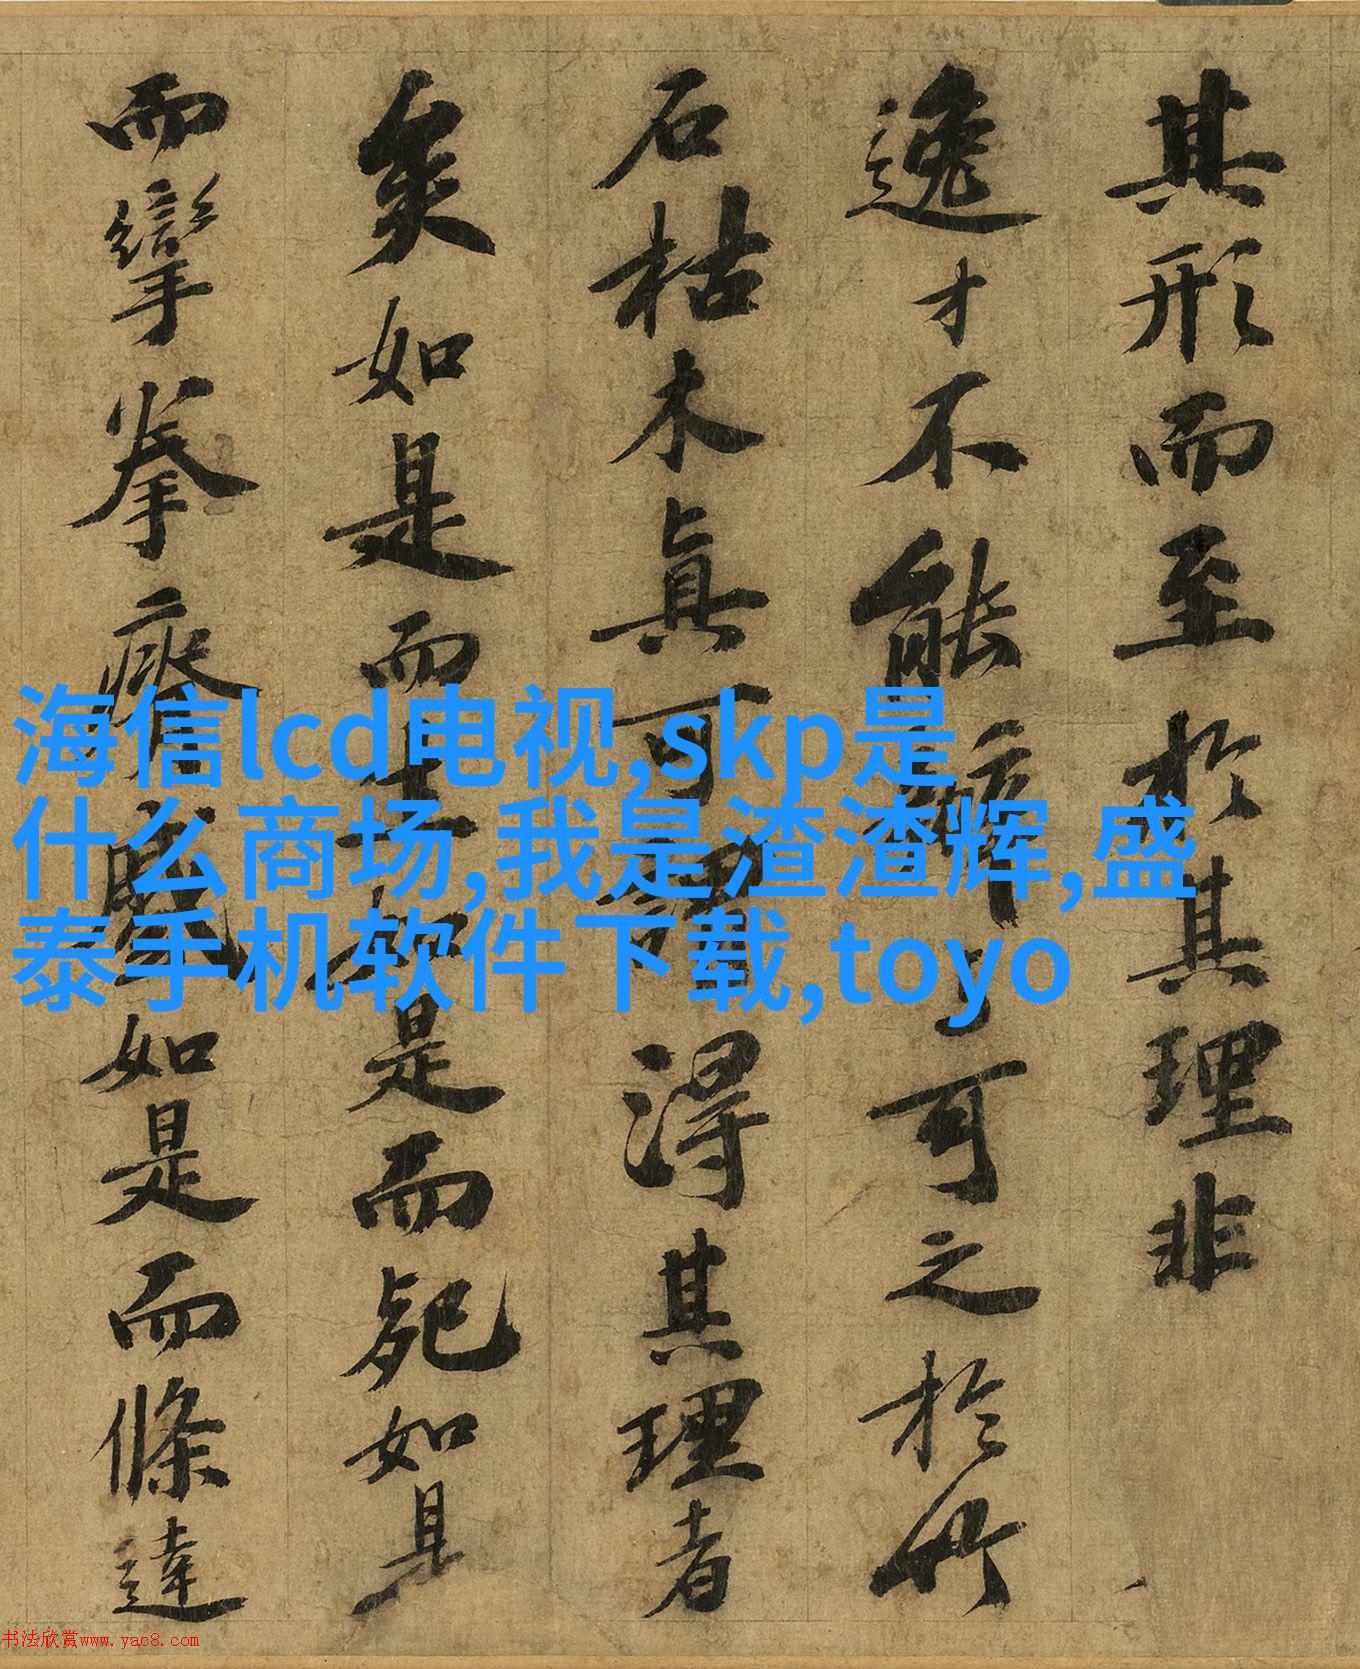 其形而至於其理非
逸才不能辨可之於竹
石枯木真可謂得其理者
矣如是而生如是而死如是
而攣拳瘠蹙如是而條達
海信lcd电视,skp是
什么商场,我是渣渣辉,盛
泰手机软件下载,toyo
书法欣赏www.yac8.com